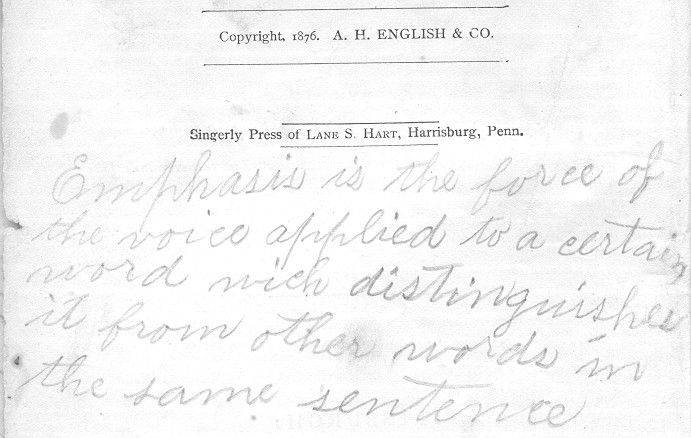 Copyright, 1876. A. H. ENGLISH & CO.
Singerly Press of LANE S. HART, Harrisburg, Penn.
Emphasis is the force of
the voice applied to a certain
word wich distinguishes
it from other words in
the same sentence